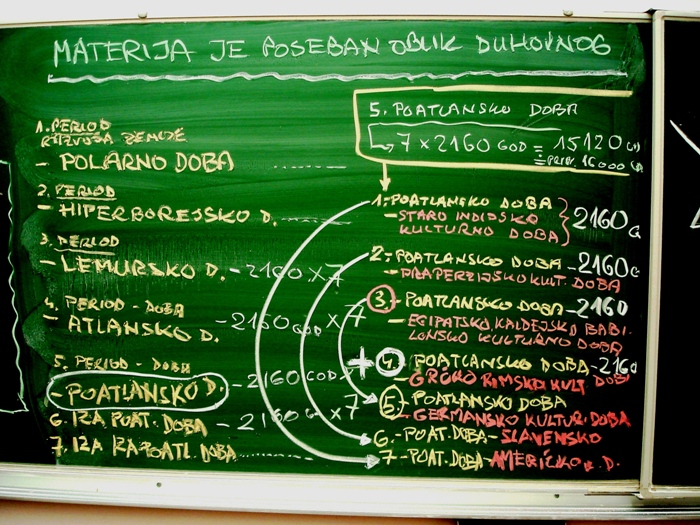 MATERIJA JE POSEBAN OBLIK DUHOVNOG
1. PERIOD
RAZVOJA ZEMLJE
- POLARNO DOBA
2. PERIOD
- HIPERBOREJSKO D.
3. PERIOD
- LEMURSKO D. - 2160 X 7
4. PERIOD - DOBA
- ATLANSKO D. - 2160 GOD X 7
5. PERIOD - DOBA
- POATLANSKO D. - 2160 GOD X 7
6. IZA POAT. DOBA - 2160 G X 7
7. IZA IZA POATL. DOBA
5. POATLANSKO DOBA
7 X 2160 GOD = 15120 G
= PRIBL. 16000 G
1. POATLANSKO DOBA
- STARO INDIJSKO
KULTURNO DOBA } 2160 G
2. - POATLANSKO DOBA - 2160 G
- PRAPERZIJSKO KULT. DOBA
3. - POATLANSKO DOBA - 2160
- EGIPATSKO, KALDEJSKO BABI-
LONSKO KULTURNO DOBA
+ 4. POATLANSKO DOBA - 2160
- GRČKO RIMSKO KULT DOBA
5. - POATLANSKO DOBA
- GERMANSKO KULTUR. DOBA
6. - POAT. DOBA - SLAVENSKO
7 - POAT. DOBA - AMERIČKO K. D.